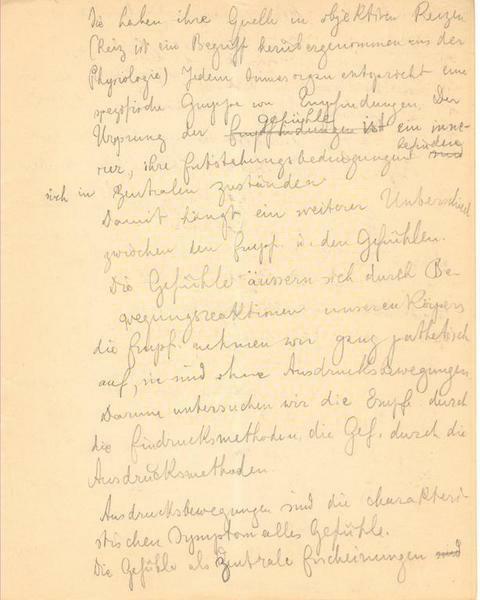 Die haben ihre Quelle in objektiven Reizen
(Reiz ist ein Begriff herübergenommen aus der
Physiologie) Jedem Sinnesorgan entspricht eine
spezifische Gruppe von Empfindungen. Der
Ursprung der Empfindungen gefühle ist ein inne-
rer, ihre Entstehungsbedingungen sind befinden
sich in Zentralen zuständen
Damit hängt ein weiterer Unterschied
zwischen den Empf. u. den Gefühlen.
Die Gefühle äussern sich durch Be-
wegungsreaktionen unseren Körpers
die Empf. nehmen wir ganz pathetisch
auf, sie sind ohne Ausdrucksbewegungen
Darum untersuchen wir die Empf. durch
die Eindrucksmethoden, die Gef. durch die
Ausdrucksmethoden.
Ausdrucksbewegungen sind die charakteri-
stischen Symptom alles Gefühle.
Die Gefühle als Zentrale Erscheinungen sind